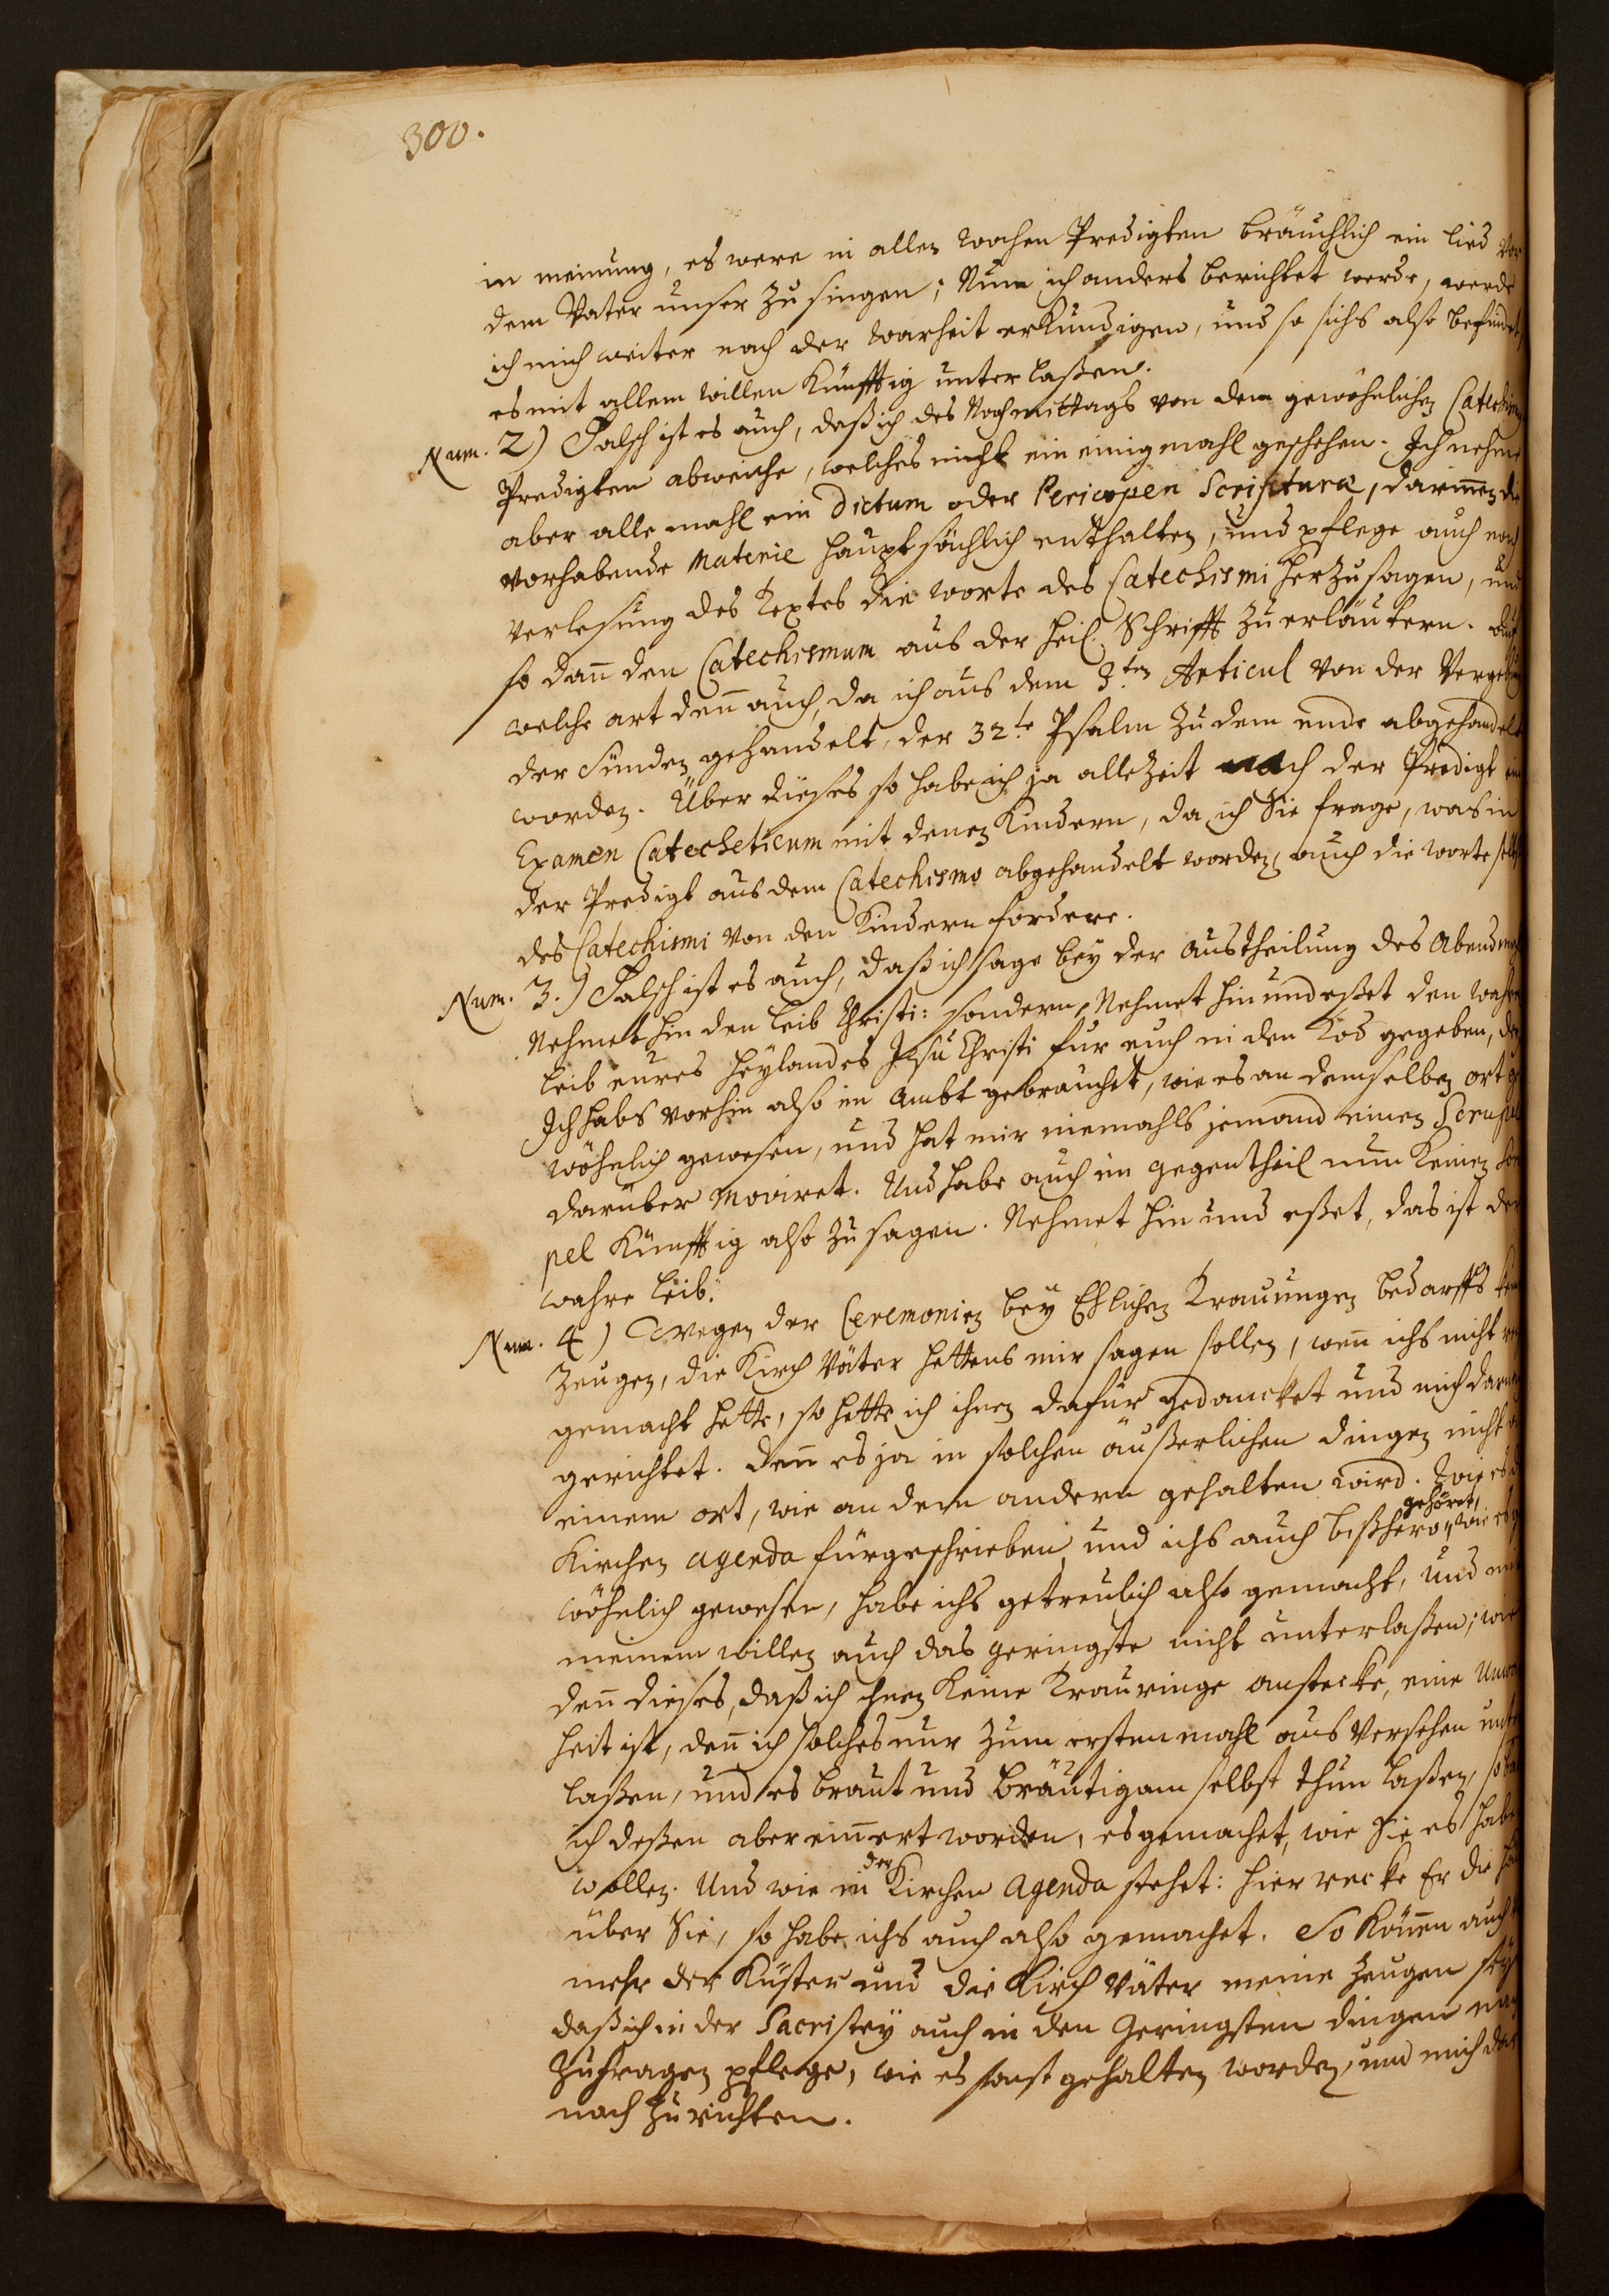 300.
in meinung, es were in allen wochen Predigten bräuchlich ein lied vor
dem Vater unser zu singen; Nun ich anders berichtet werde, werde
ich mich weiter nach der warheit erkundigen, und so sichs also befindet,
es mit allem willen künfftig unterlaßen.
Num. 2) Falsch ist es auch, daß ich des Nachmittags von dem gewöhnlichen Catechismi
Predigten abweiche, welches nicht ein einig mahl geschehen. Ich nehme
aber alle mahl ein Dictum oder Pericopen Scripturæ, darinnen die
vorhabende Materie hauptsächlich enthalten, und pflege auch nach
verlesung des Textes die worte des Catechismi herzusagen, und
so dañ den Catechismum aus der heil. Schrifft zu erläutern. auf
welche art deñ auch, da ich aus dem 3ten Articul von der Vergebung
der Sünden gehandelt, der 32te Psalm zu dem ende abgehandelt
worden. Über dieses so habe ich ja allezeit nach der Predigt ein
Examen Catecheticum mit denen Kindern, da ich Sie frage, was in
der Predigt aus dem Catechismo abgehandelt worden, auch die worte selbst
des Catechismi von den Kindern fordere.
Num. 3.) Falsch ist es auch, daß ich sage bey der Austheilung des Abendmahls
Nehmet hin den Leib Christi: sondern, Nehmet hin und eßet den wahren
Leib eures Heylandes Jesu Christi für euch in den Tod gegeben, den
Ich habs vorhin also im Ambt gebrauchet, wie es an demselben ort ge
wöhnlich gewesen, und hat mir niemahls jemand einen Scrupel
darüber moviret. Und habe auch im gegentheil nun keinen Scru
pel künfftig also zu sagen. Nehmet hin und eßet, das ist der
wahre Leib.
Num. 4) Wegen der Ceremonien bey Ehlichen Trauungen bedarffs kein
Zeugen, die Kirch Väter hettens mir sagen sollen, weñ ichs nicht recht
gemacht hette, so hette ich ihnen dafür gedancket und mich darnach
gerichtet. Deñ es ja in solchen äußerlichen dingen nicht an
einem ort, wie an dem andern gehalten wird. Wie es
Kirchen Agenda fürgeschrieben, und ichs auch bißhero gehöret, wie es ge
wöhnlich gewesen, habe ichs getreulich also gemacht, und mit
meinem willen auch das geringste nicht unterlaßen; wie
deñ dieses, daß ich ihnen keine Trauringe anstecke, eine Unwar
heit ist, deñ ich solches nur zum ersten mahl aus Versehen unter
laßen, und es braut und bräutigam selbst thun laßen, so bald
ich deßen aber eriñert worden, es gemachet, wie Sie es haben
wollen. Und wie in der Kirchen Agenda stehet: hier recke Er die hand
über Sie, so habe ichs auch also gemachet. So köñen auch
mehr der Küster und die Kirch Väter meine Zeugen seyn
daß ich in der Sacristey auch in den Geringsten dingen nach
zufragen pflege, wie es sonst gehalten worden, und mich dar
nach zu richten.